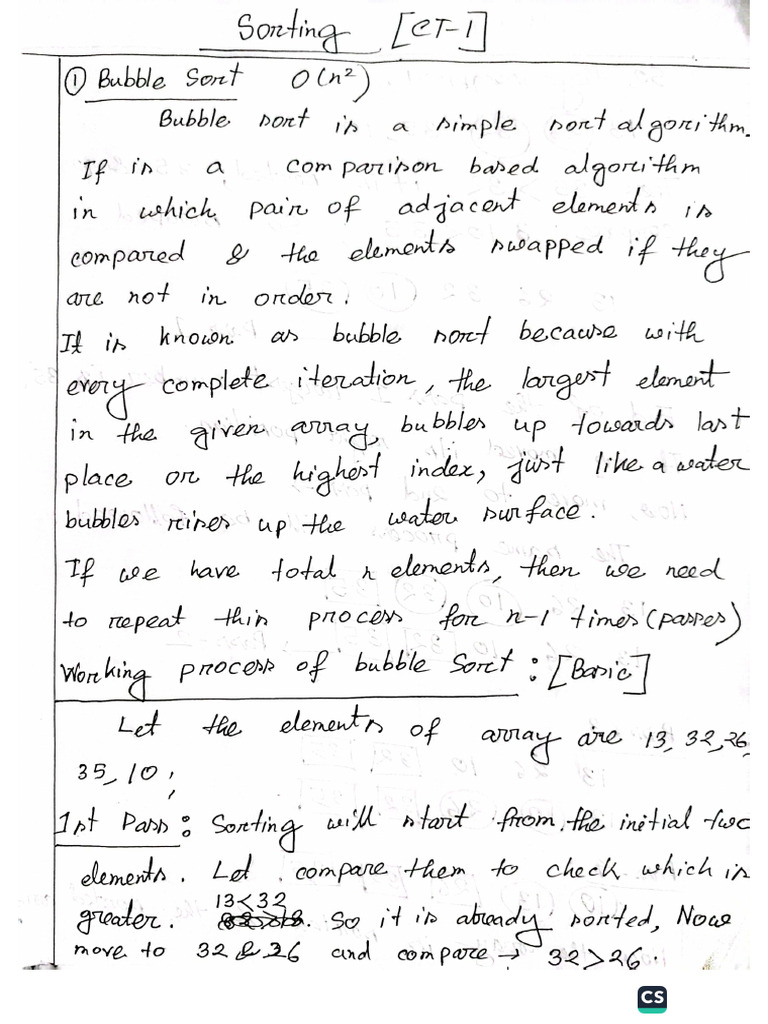 Sorting [CT-1]
① Bubble Sort O(n²)
Bubble sort is a simple sort algorithm.
If is a comparison based algorithm
in which pair of adjacent elements is
compared & the elements swapped if they
are not in order.
It is known as bubble sort because with
every complete iteration, the largest element
in the given array, bubbles up towards last
place or the highest index, just like a water
bubbles rises up the water surface.
If we have total n elements, then we need
to repeat this process for n-1 times (passes)
Working process of bubble Sort : [Basic]
Let the elements of array are 13, 32, 26,
35, 10,
1st Pass : Sorting will start from the initial two
elements. Let compare them to check which is
greater. 13<32. So it is already sorted, Now
move to 32 & 26 and compare → 32>26.
CS